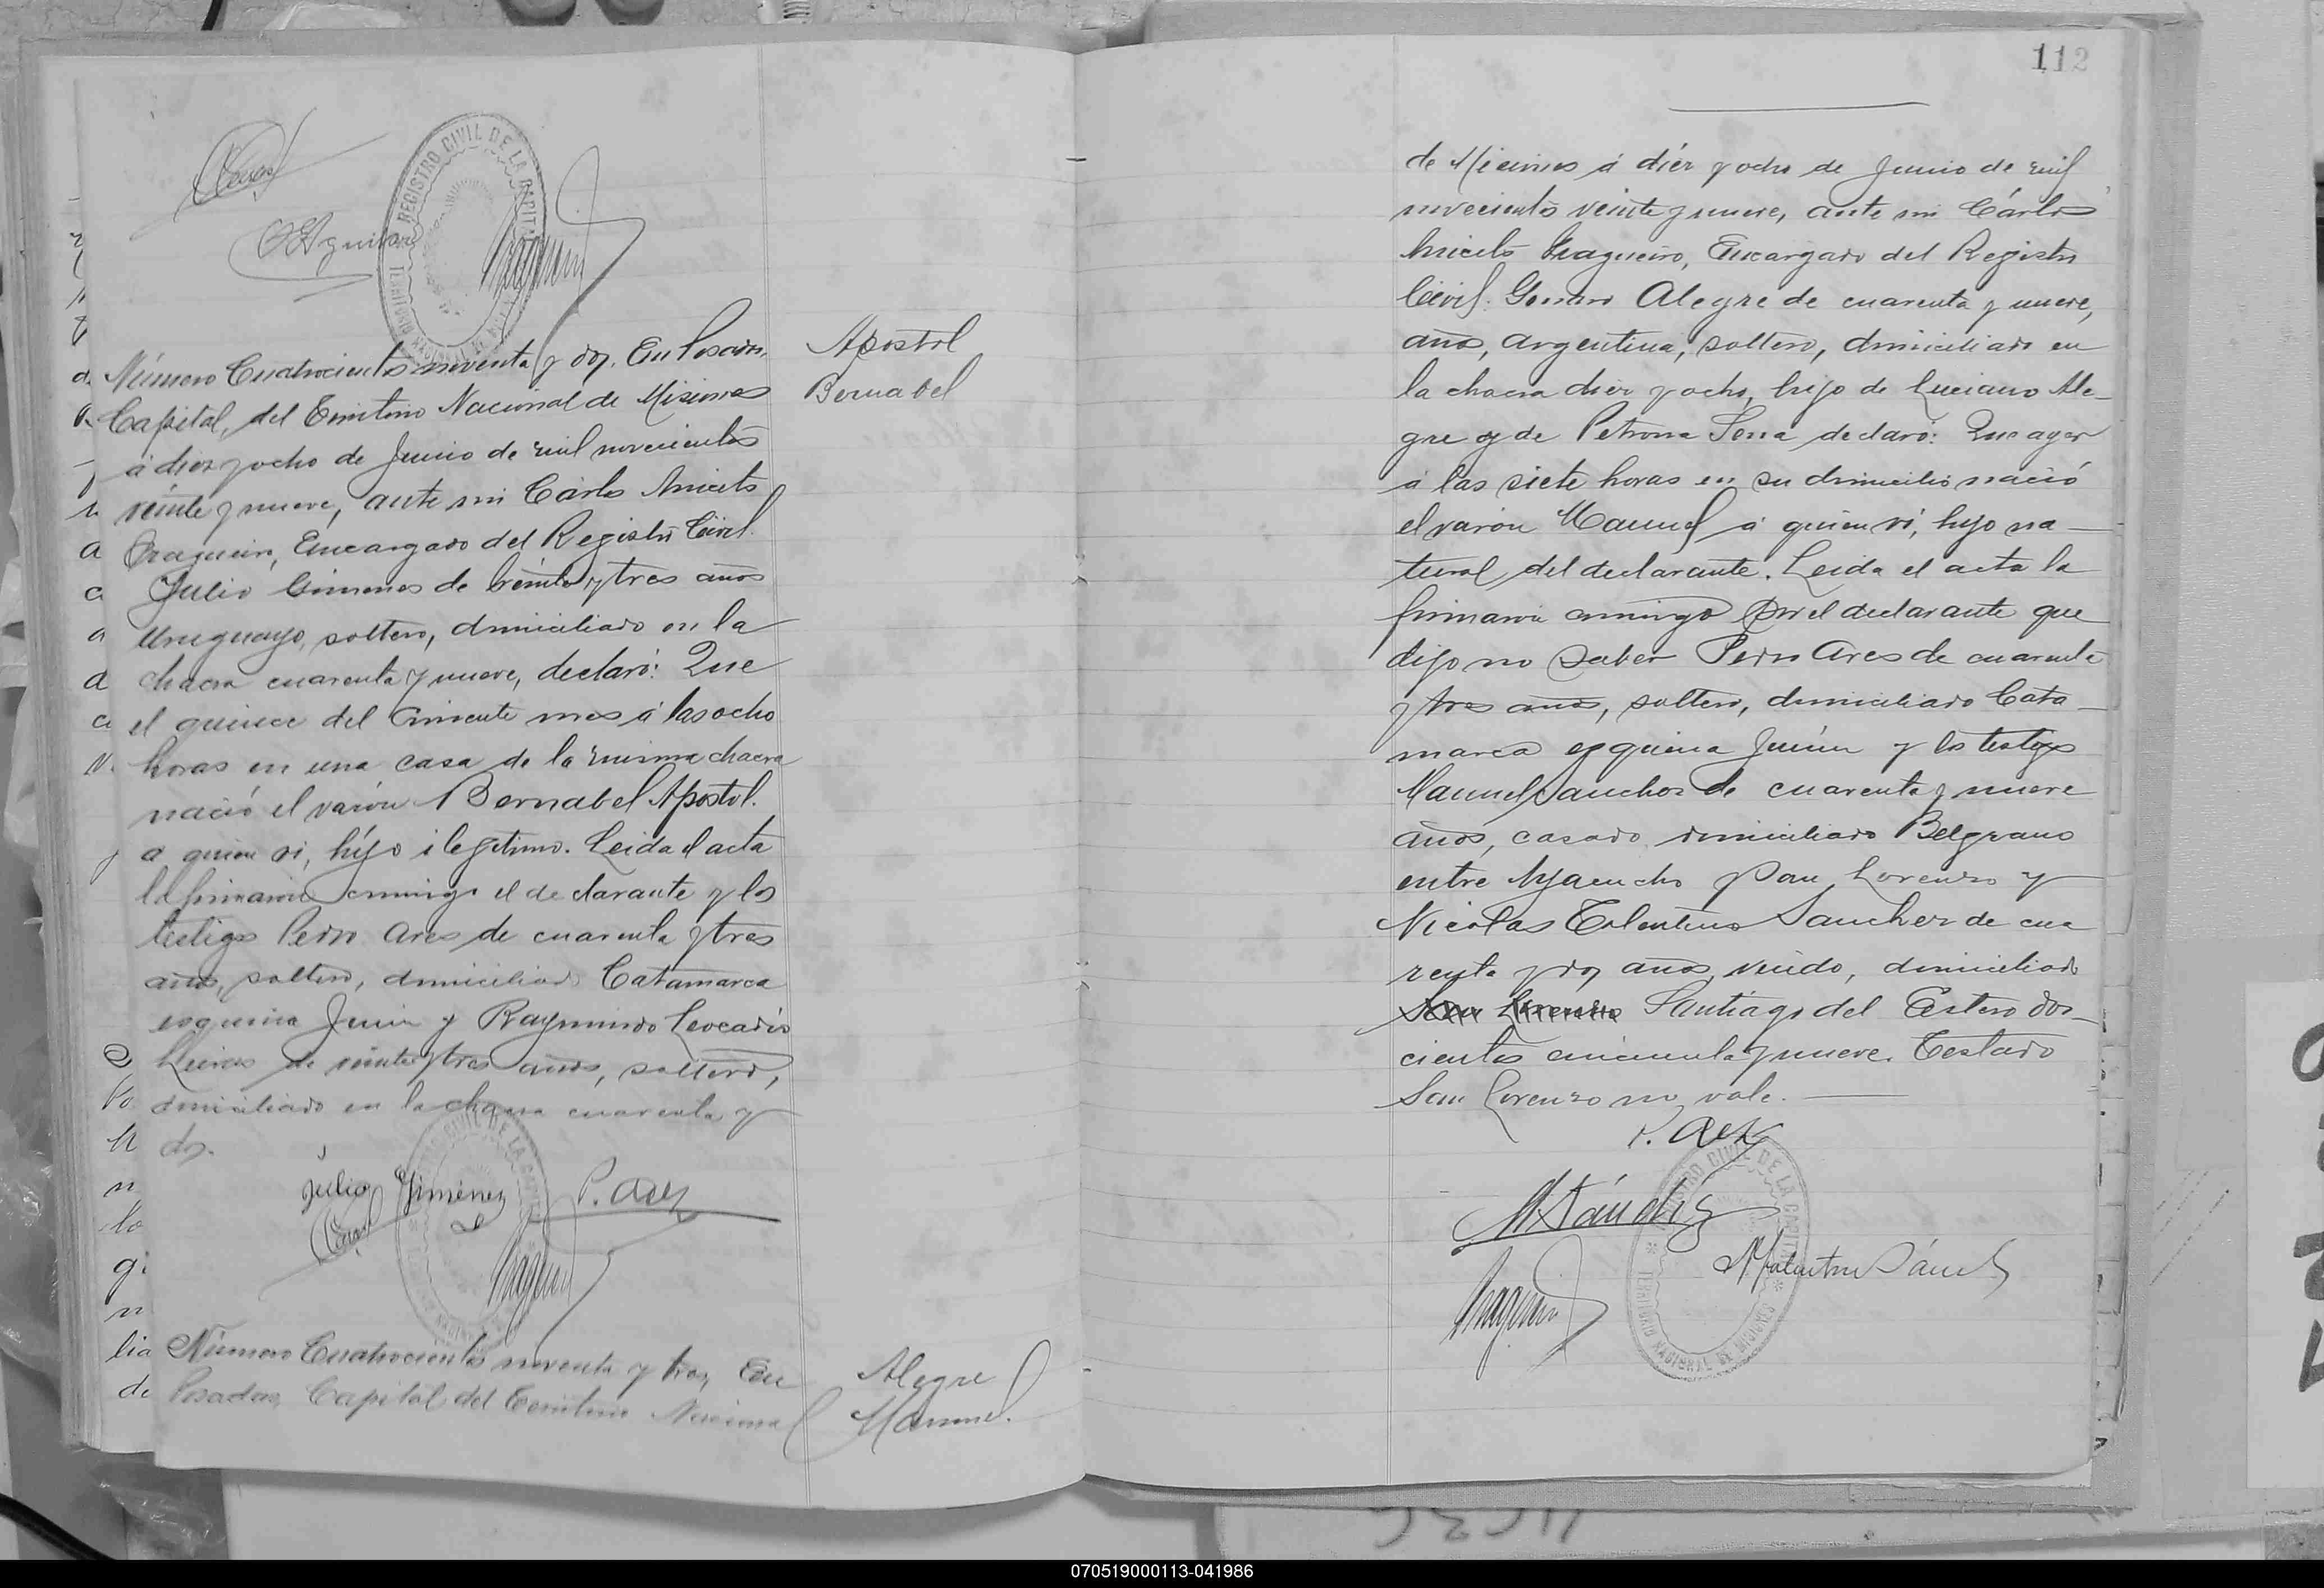 112
REGISTRO CIVIL DE LA CAPITAL
TERRITORIO NACIONAL DE MISIONES
Número Cuatrocientos noventa y dos. En Posadas,
Capital, del Territorio Nacional de Misiones
á diez y ocho de Junio de mil novecientos
veinte y nueve, ante mi Cárlos Aniceto
Fragueiro, Encargado del Registro Civil.
Julio Gimenes de veinte y tres años
Uruguayo, soltero, domiciliado en la
chacra cuarenta y nueve, declaró: Que
el quince del corriente mes á las ocho
horas en una casa de la misma chacra
nació el varón Bernabel Apostol.
a quien vi, hijo ilegitimo. Leida el acta
la firmaron conmigo el declarante y los
testigos Pedro Ares de cuarenta y tres
años, soltero, domiciliado Catamarca
esquina Junin y Raymundo Leocadio
de veinte y tres años, soltero,
domiciliado en la chacra cuarenta y
dos.
Apostol
Bernabel
Julio Gimenez
P. Ares
Número Cuatrocientos noventa y tres, En
Posadas, Capital del Territorio Nacional
Alegre
Manuel.
de Misiones á diez y ocho de Junio de mil
novecientos veinte y nueve, ante mi Cárlos
Aniceto Fragueiro, Encargado del Registro
Civil. Genaro Alegre de cuarenta y nueve,
años, argentino, soltero, domiciliado en
la chacra diez y ocho, hijo de Luciano Ale-
gre y de Petrona Sosa declaró: Que ayer
á las siete horas en su domicilio nació
el varón Manuel á quien vi, hijo na-
tural del declarante. Leida el acta la
firmaron conmigo por el declarante que
dijo no saber Pedro Ares de cuarenta
y tres años, soltero, domiciliado Cata-
marca esquina Junin y los testigos
Manuel Sanchez de cuarenta y nueve
años, casado domiciliado Belgrano
entre Ayacucho y San Lorenzo y
Nicolas Tolentino Sanchez de cua
renta y dos años, viudo, domiciliado
San Lorenzo Santiago del Estero dos-
cientos cincuenta y nueve. Testado
San Lorenzo no vale.
P. Ares
M. Sánchez
N. Tolentino Sánchez
REGISTRO CIVIL DE LA CAPITAL
TERRITORIO NACIONAL DE MISIONES
070519000113-041986